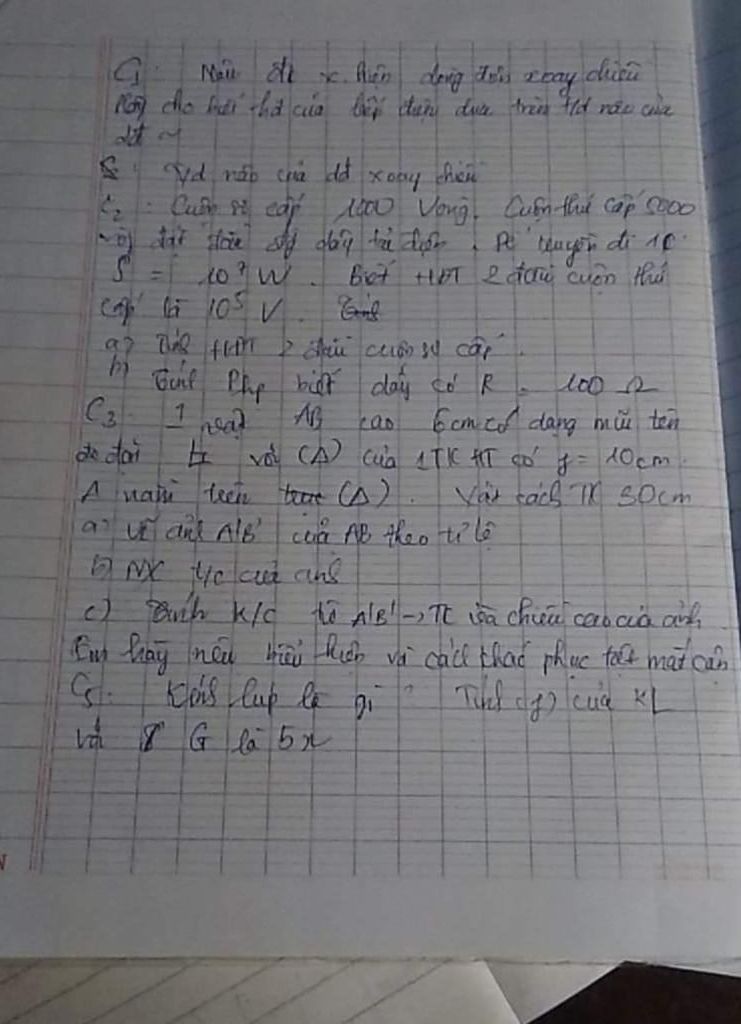 C1. Nêu đk x. hiện dòng điện xoay chiều
cho hoạt của bếp điện dựa trên t/d nào của
dđ ~
T/d nào của dđ xoay chiều
C2: Cuộn sơ cấp 1000 vòng. Cuộn thứ cấp 5000
vòng đặt đầu dây tải điện. Để truyền đi 1
P = 10⁷ W. Biết HĐT 2 đầu cuộn thứ
cấp là 10⁵ V.
a) Tính HĐT 2 đầu cuộn sơ cấp.
b) Tính Php biết dây có R = 100 Ω
C3. 1 AB cao 6cm có dạng mũi tên
đc đặt ⊥ với (Δ) của 1TK HT có f = 10cm.
A nằm trên (Δ). Vật cách TK 30cm
a) vẽ ảnh A'B' của AB theo tỉ lệ
b) NX t/c của ảnh
c) Tính K/C từ A'B' → TK và chiều cao của ảnh
Em hãy nêu biểu hiện và cách khắc phục tật mắt cận
C5. Kính lúp là gì? Tính (f) của KL
với G là 5x